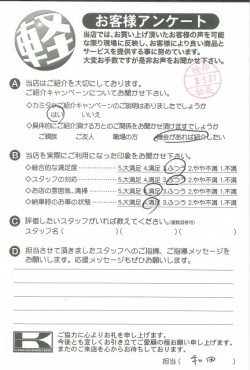 軽
お客様アンケート
当店では、お買い上げ頂いたお客様の声を可能
な限り現場に反映し、お客様により良い商品と
サービスを提供する事に努めています。
大変お手数ですが是非お声をお聞かせ下さい。
A 当店はご紹介を大切にしております。
ご紹介キャンペーンについてお聞かせ下さい。
◇カミタケご紹介キャンペーンのご説明はありましたでしょうか
はい いいえ
◇具体的にご紹介頂ける方とのご関係をお聞かせ頂けますでしょうか
ご親族 ご友人 職場の方 機会があれば紹介したい
B 当店を実際にご利用になった印象をお聞かせ下さい。
◇総合的な満足度 5.大満足 4.満足 3.ふつう 2.やや不満 1.不満
◇スタッフの対応 5.大満足 4.満足 3.ふつう 2.やや不満 1.不満
◇お店の雰囲気、清掃 5.大満足 4.満足 3.ふつう 2.やや不満 1.不満
◇納車時のお車の状態 5.大満足 4.満足 3.ふつう 2.やや不満 1.不満
C 評価したいスタッフがいれば教えてください。(複数回答可)
スタッフ名( )( )( )
D 担当させて頂きましたスタッフへのご指摘、ご指導メッセージを
お願いします。応援メッセージもぜひお願いします。
K
ご協力に心よりお礼を申し上げます。
今後とも宜しくお引き立てご愛顧の程お願い申し上げます。
またのご来店を心からお待ちしております。
担当( 和田 )